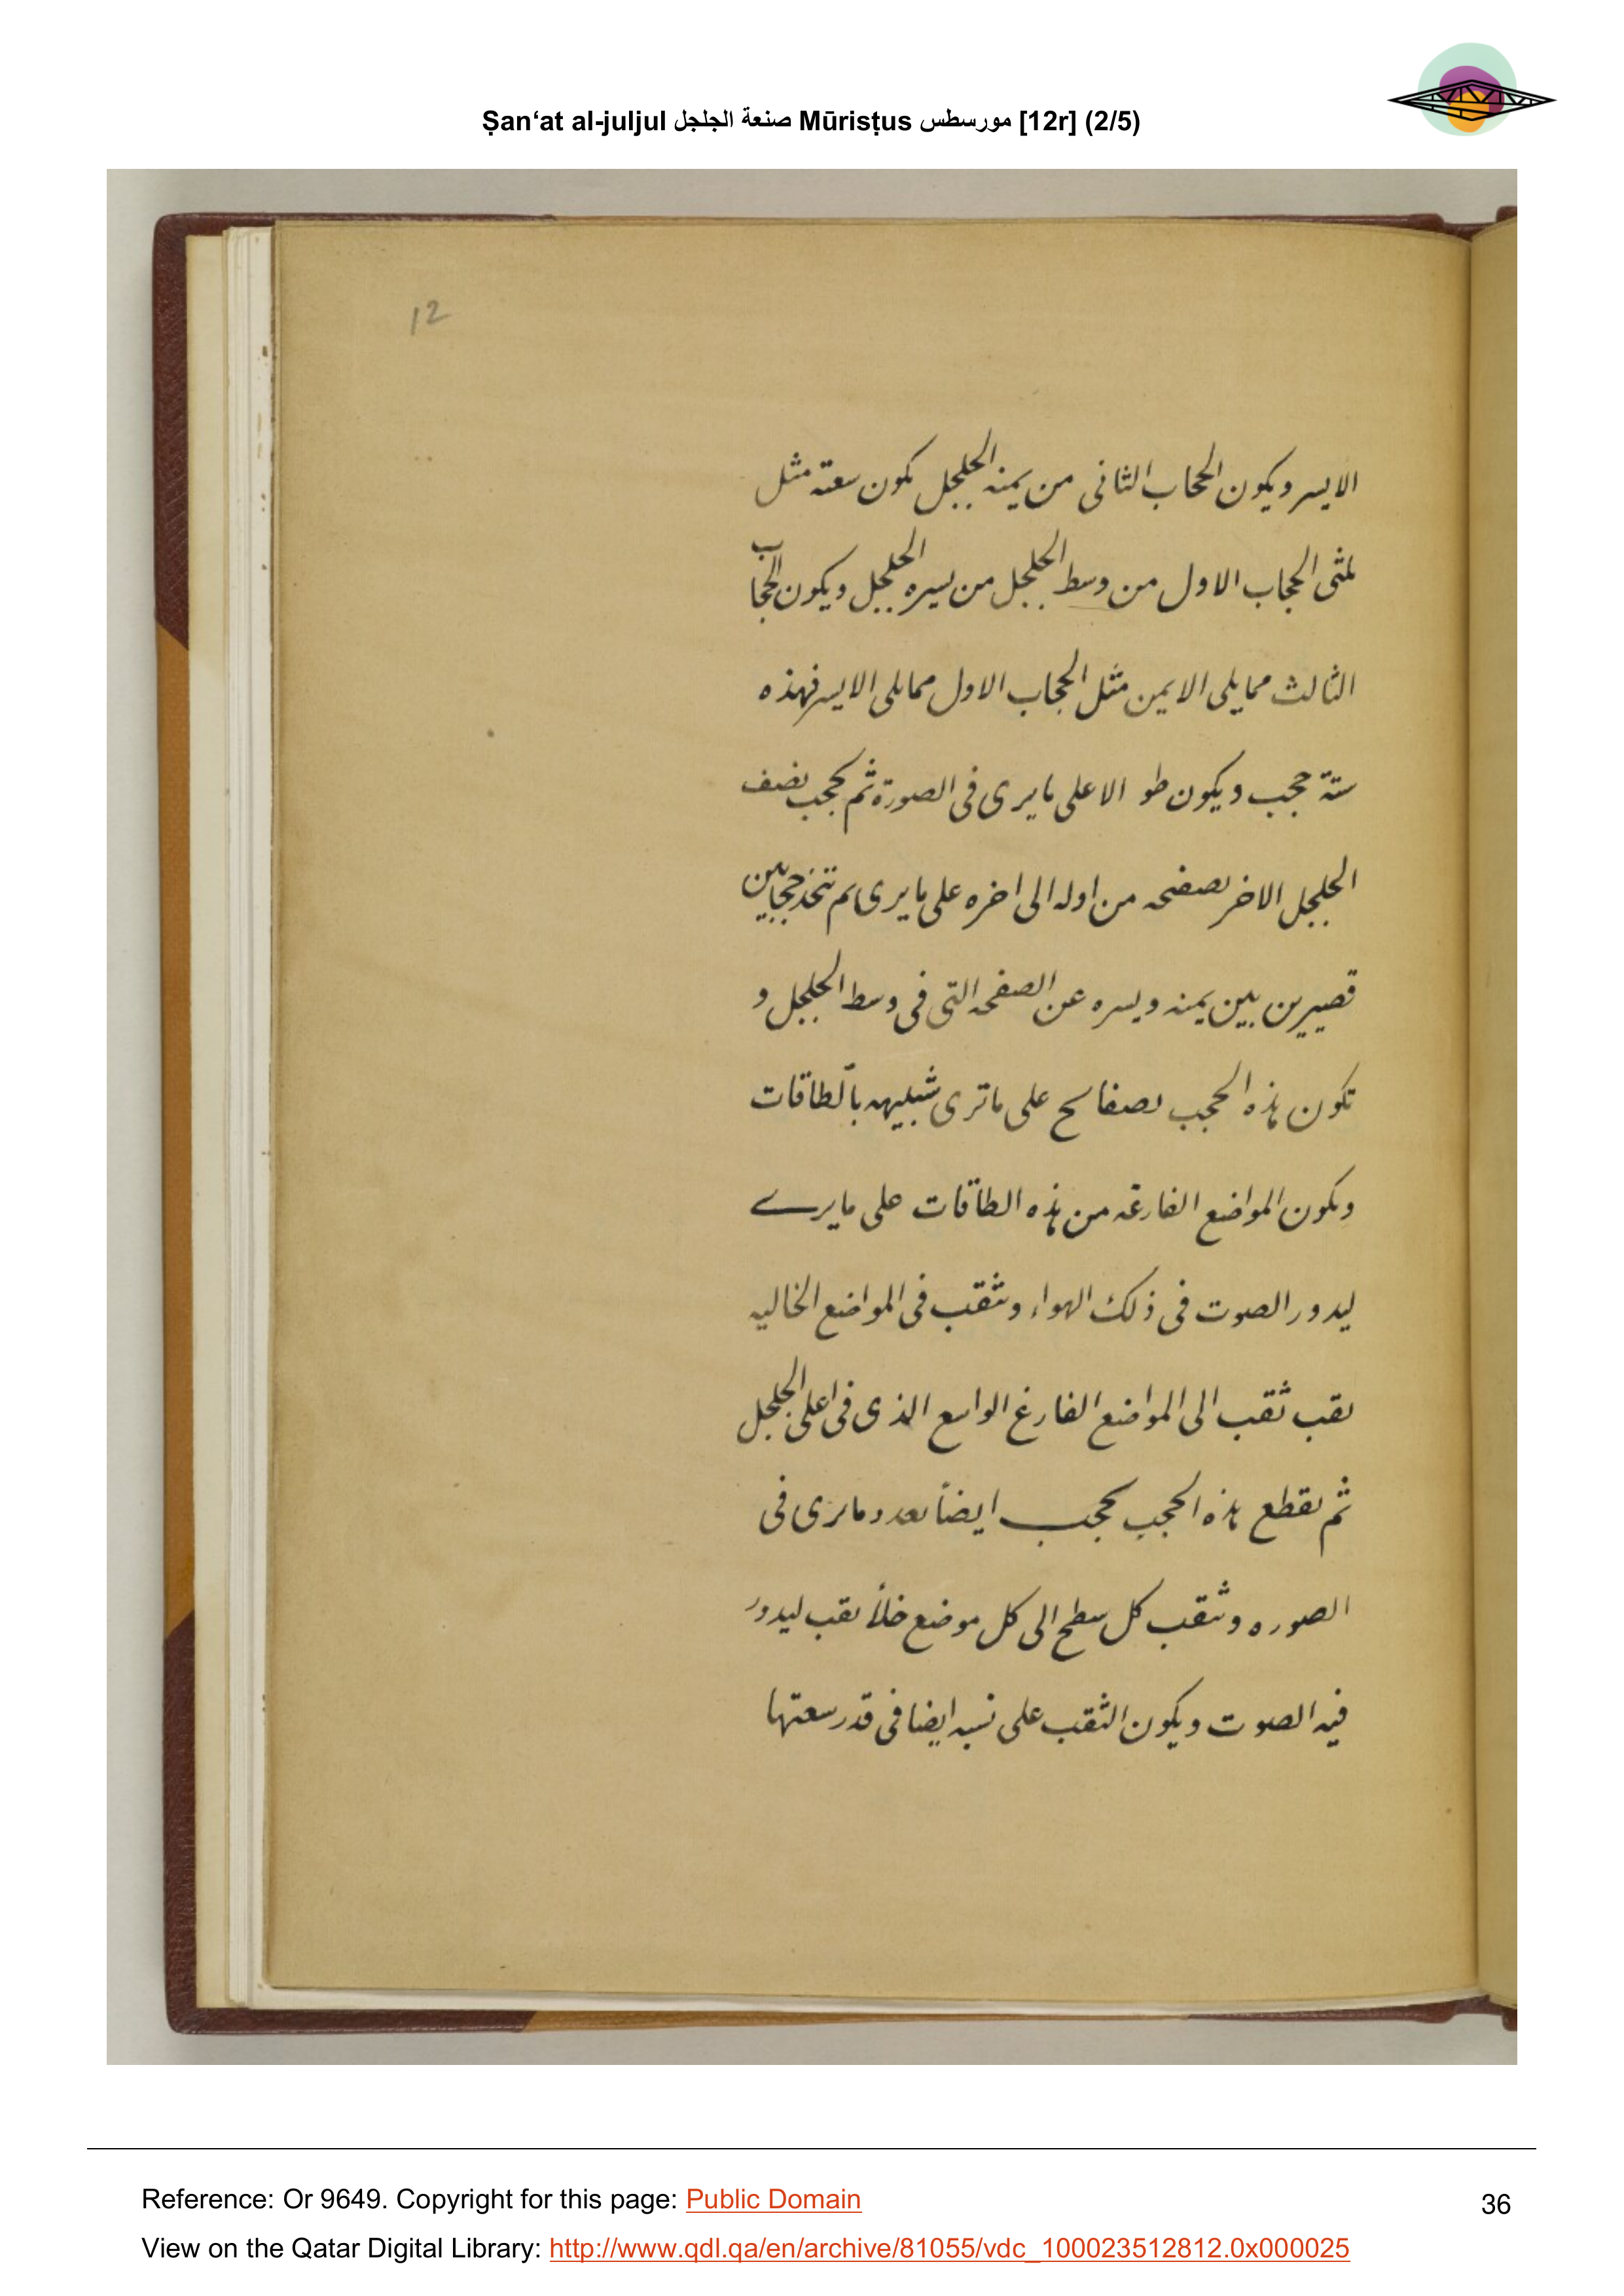 Ṣan‘at al-juljul صنعة الجلجل Mūrisṭus مورسطس [12r] (2/5)
12
الايسر ويكون الحجاب الثانى من يمنه الجلجل تكون سعته مثل
ثلثى الحجاب الاول من وسط الجلجل من يسيره الجلجل ويكون الحجاب
الثالث مما يلى الايمن مثل الحجاب الاول مما يلى الايسر فهذه
ستة حجب ويكون طو الاعلى ما يرى فى الصورة ثم تحجب نصف
الجلجل الاخر بصفحه من اوله الى اخره على ما يرى ثم تتخذ حجابين
قصيرين بين يمنه ويسره عن الصفحه التى فى وسط الجلجل و
تكون هذه الحجب بصفايح على ما ترى شبيهه بالطاقات
وتكون المواضع الفارغه من هذه الطاقات على ما يرى
ليدور الصوت فى ذلك الهواء وتثقب فى المواضع الخاليه
ثقب ثقب الى المواضع الفارغ الواسع الذى فى اعلى الجلجل
ثم تقطع هذه الحجب بحجب ايضاً بعدد ما يرى فى
الصوره وتثقب كل سطح الى كل موضع خلأ ثقب ليدور
فيه الصوت ويكون الثقب على نسبه ايضا فى قدر سعتها
Reference: Or 9649. Copyright for this page: Public Domain
36
View on the Qatar Digital Library: http://www.qdl.qa/en/archive/81055/vdc_100023512812.0x000025